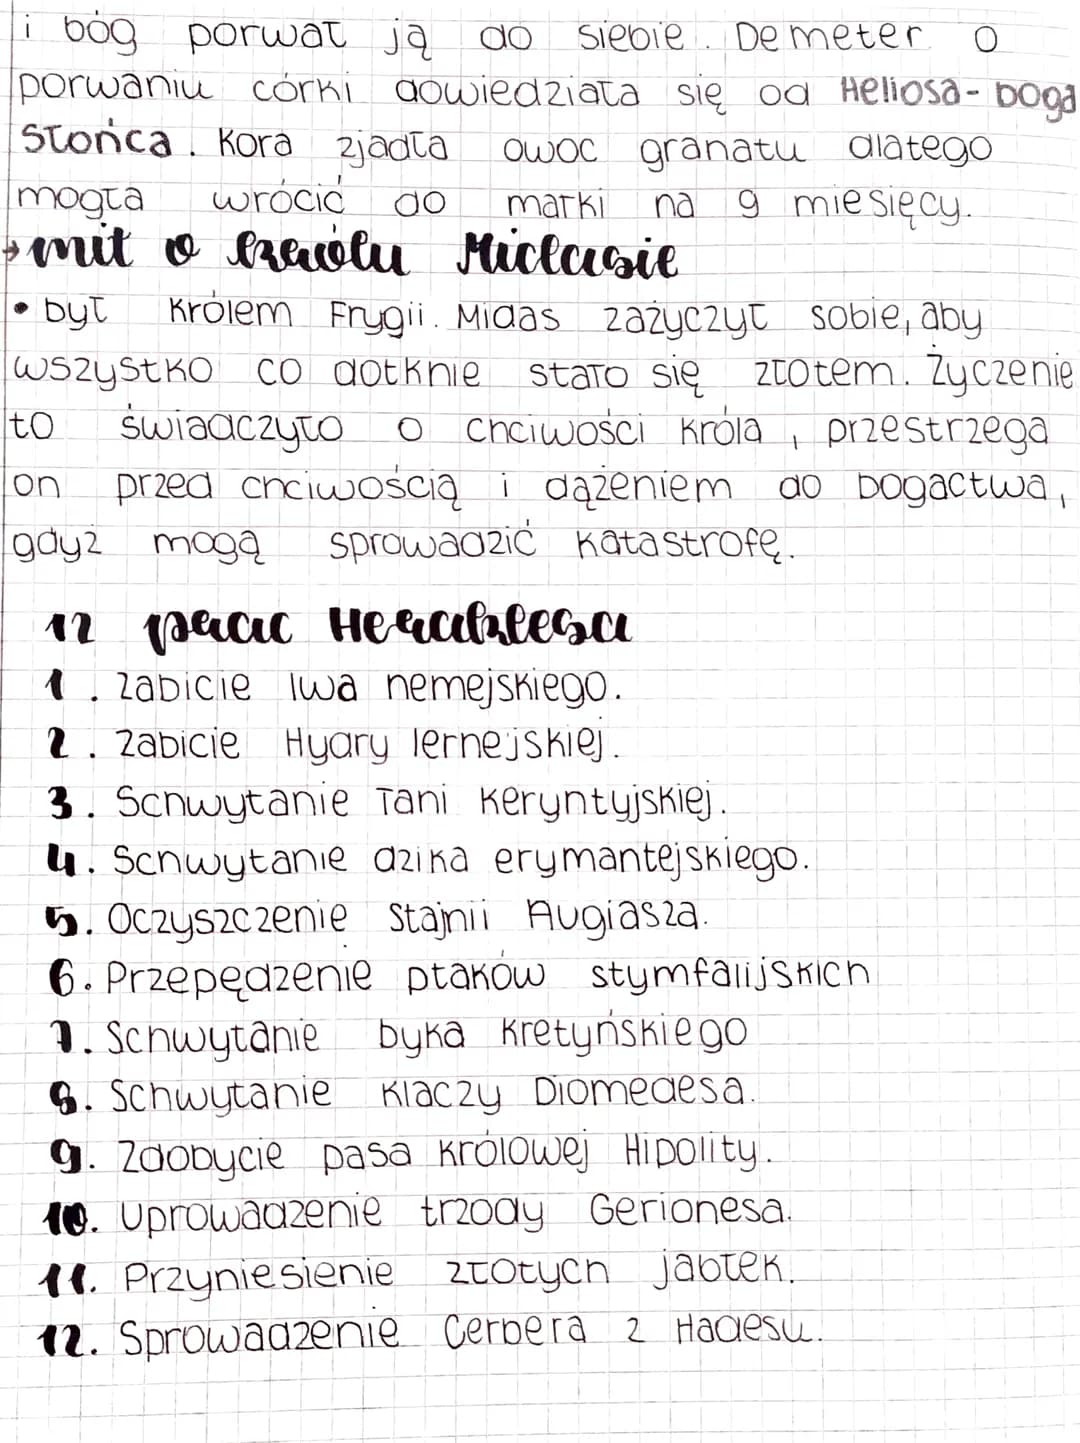 i bóg porwał ją do siebie. Demeter o
porwaniu córki dowiedziała się od Heliosa - boga
Słońca. Kora zjadła owoc granatu dlatego
mogła wrócić do matki na 9 miesięcy.
→ mit o królu Midasie
• był królem Frygii. Midas zażyczył sobie, aby
wszystko co dotknie stało się złotem. Życzenie
to świadczyło o chciwości króla, przestrzega
on przed chciwością i dążeniem do bogactwa,
gdyż mogą sprowadzić katastrofę.
12 prac Heraklesa
1. Zabicie lwa nemejskiego.
2. Zabicie Hydry lernejskiej.
3. Schwytanie łani keryntyjskiej.
4. Schwytanie dzika erymantejskiego.
5. Oczyszczenie Stajnii Augiasza.
6. Przepędzenie ptaków stymfalijskich
7. Schwytanie byka kretyńskiego
8. Schwytanie klaczy Diomedesa.
9. Zdobycie pasa królowej Hipolity.
10. Uprowadzenie trzody Gerionesa.
11. Przyniesienie złotych jabłek.
12. Sprowadzenie Cerbera z Hadesu.